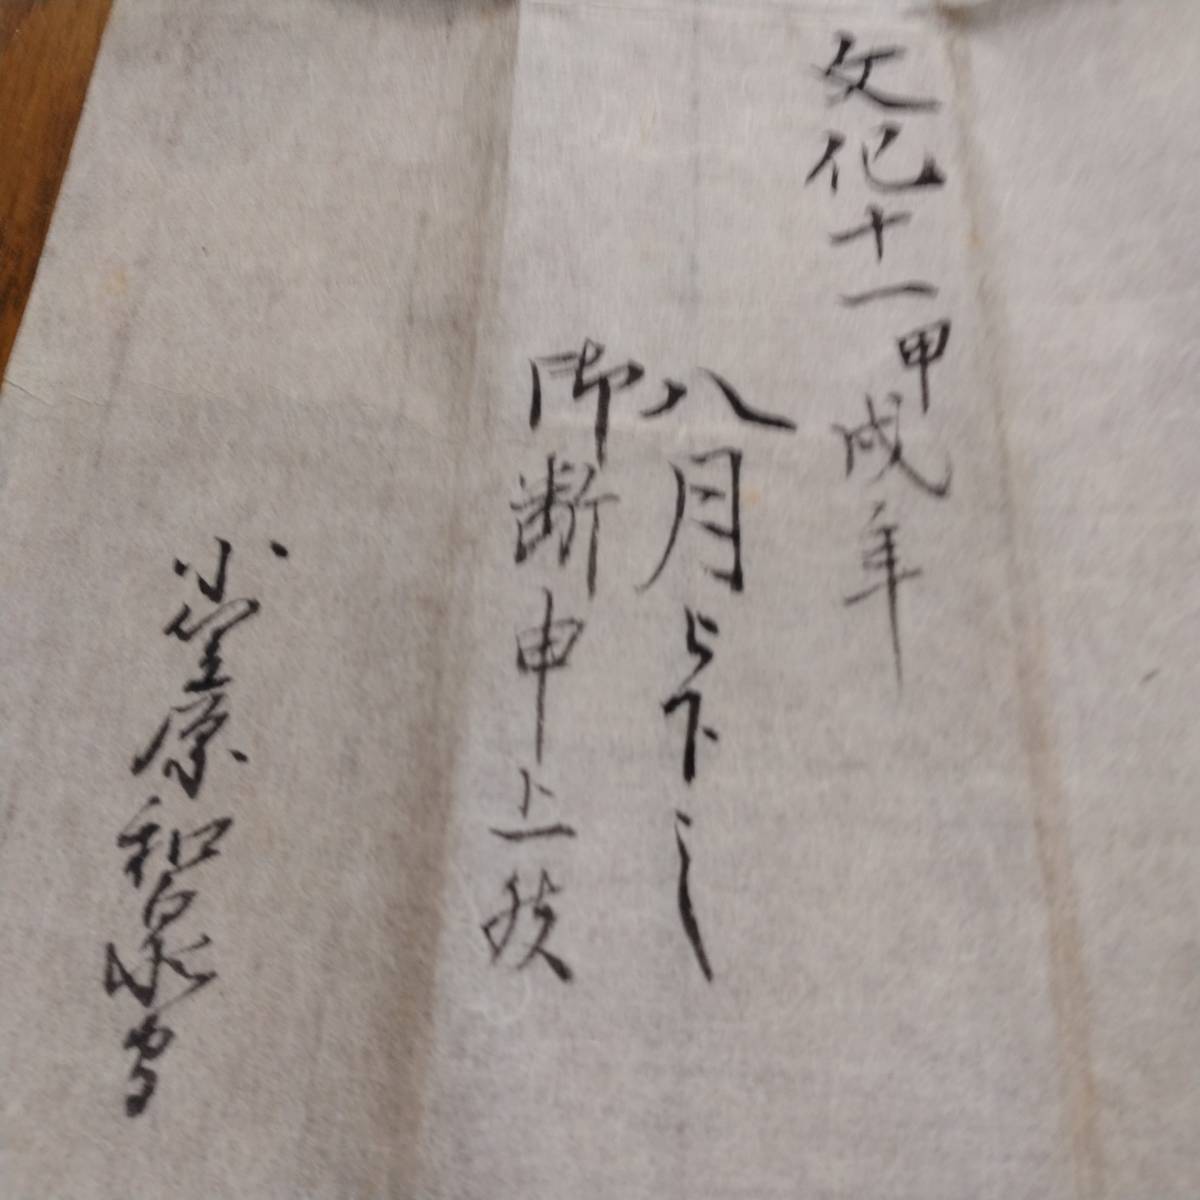 文化十一甲戌年
八月
御断申上候
小笠原和泉守